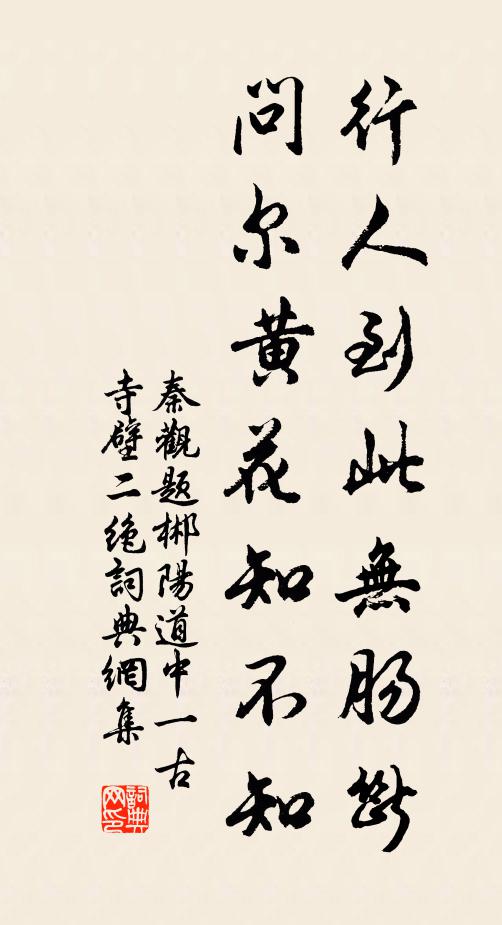 行人到此無肠斷
问尔黄花知不知
秦觀题郴陽道中一古
寺壁二绝詞典網集
詞典网印